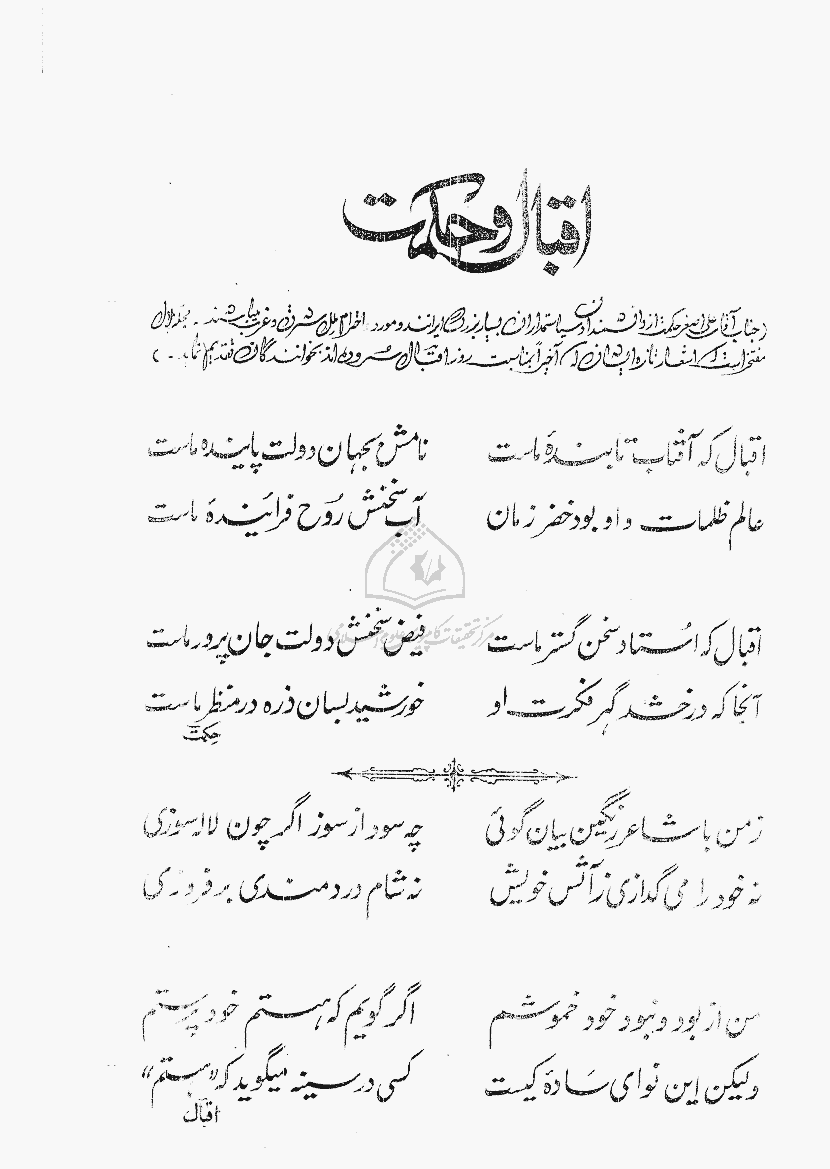 اقبال و حکمت
(جناب آقای علی اصغر حکمت از دانشمندان و سیاستمداران بسیار بزرگ ایرانند و مورد احترام ملل شرق و غرب میباشند - مجله هلال
مفتخر است که اشعار تازه ایشان که اخیراً بمناسبت روز اقبال سروده‌اند بخوانندگان تقدیم نماید - )
اقبال که آفتاب تابندهٔ ماست نامش بجهان دولت پاینده ماست
عالم ظلمات و او بود خضر زمان آب سخنش رُوح فزایندهٔ ماست
اقبال که اُستاد سخن گستر ماست فیض سخنش دولت جان پرور ماست
آنجا که درخشد گهر فکرت او خورشید بسان ذره در منظر ماست
حکمت
مرکز تحقیقات کامپیوتری علوم اسلامی
زمن با شاعر رنگین بیان گوئی چه سود از سوز اگر چون لاله سوزی
نه خود را می گدازی ز آتش خویش نه شام دردمندی بر فروزی
من از بود و نبود خود خموشم اگر گویم که هستم خود پرستم
ولیکن این نوای سادهٔ کیست کسی در سینه میگوید که "هستم"
اقبال